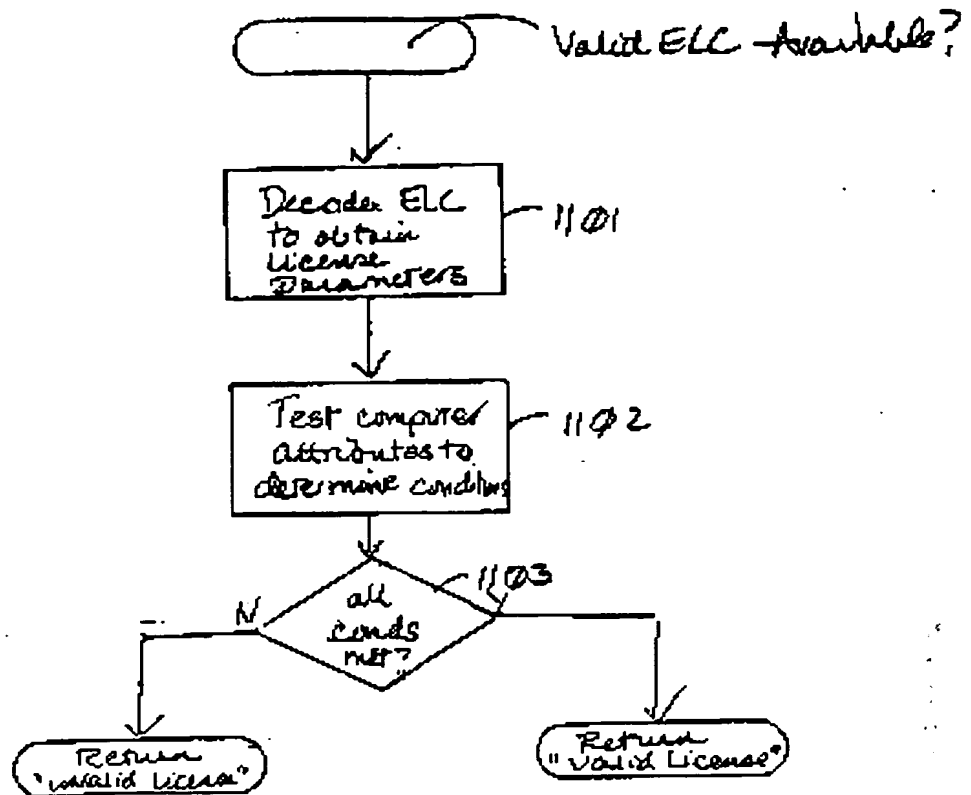 Valid ELC Available?
Decode ELC
to obtain
License
Parameters
11Ø1
Test computer
attributes to
determine conditions
11Ø2
11Ø3
N
all
conds
met?
Return
"invalid License"
Return
"Valid License"